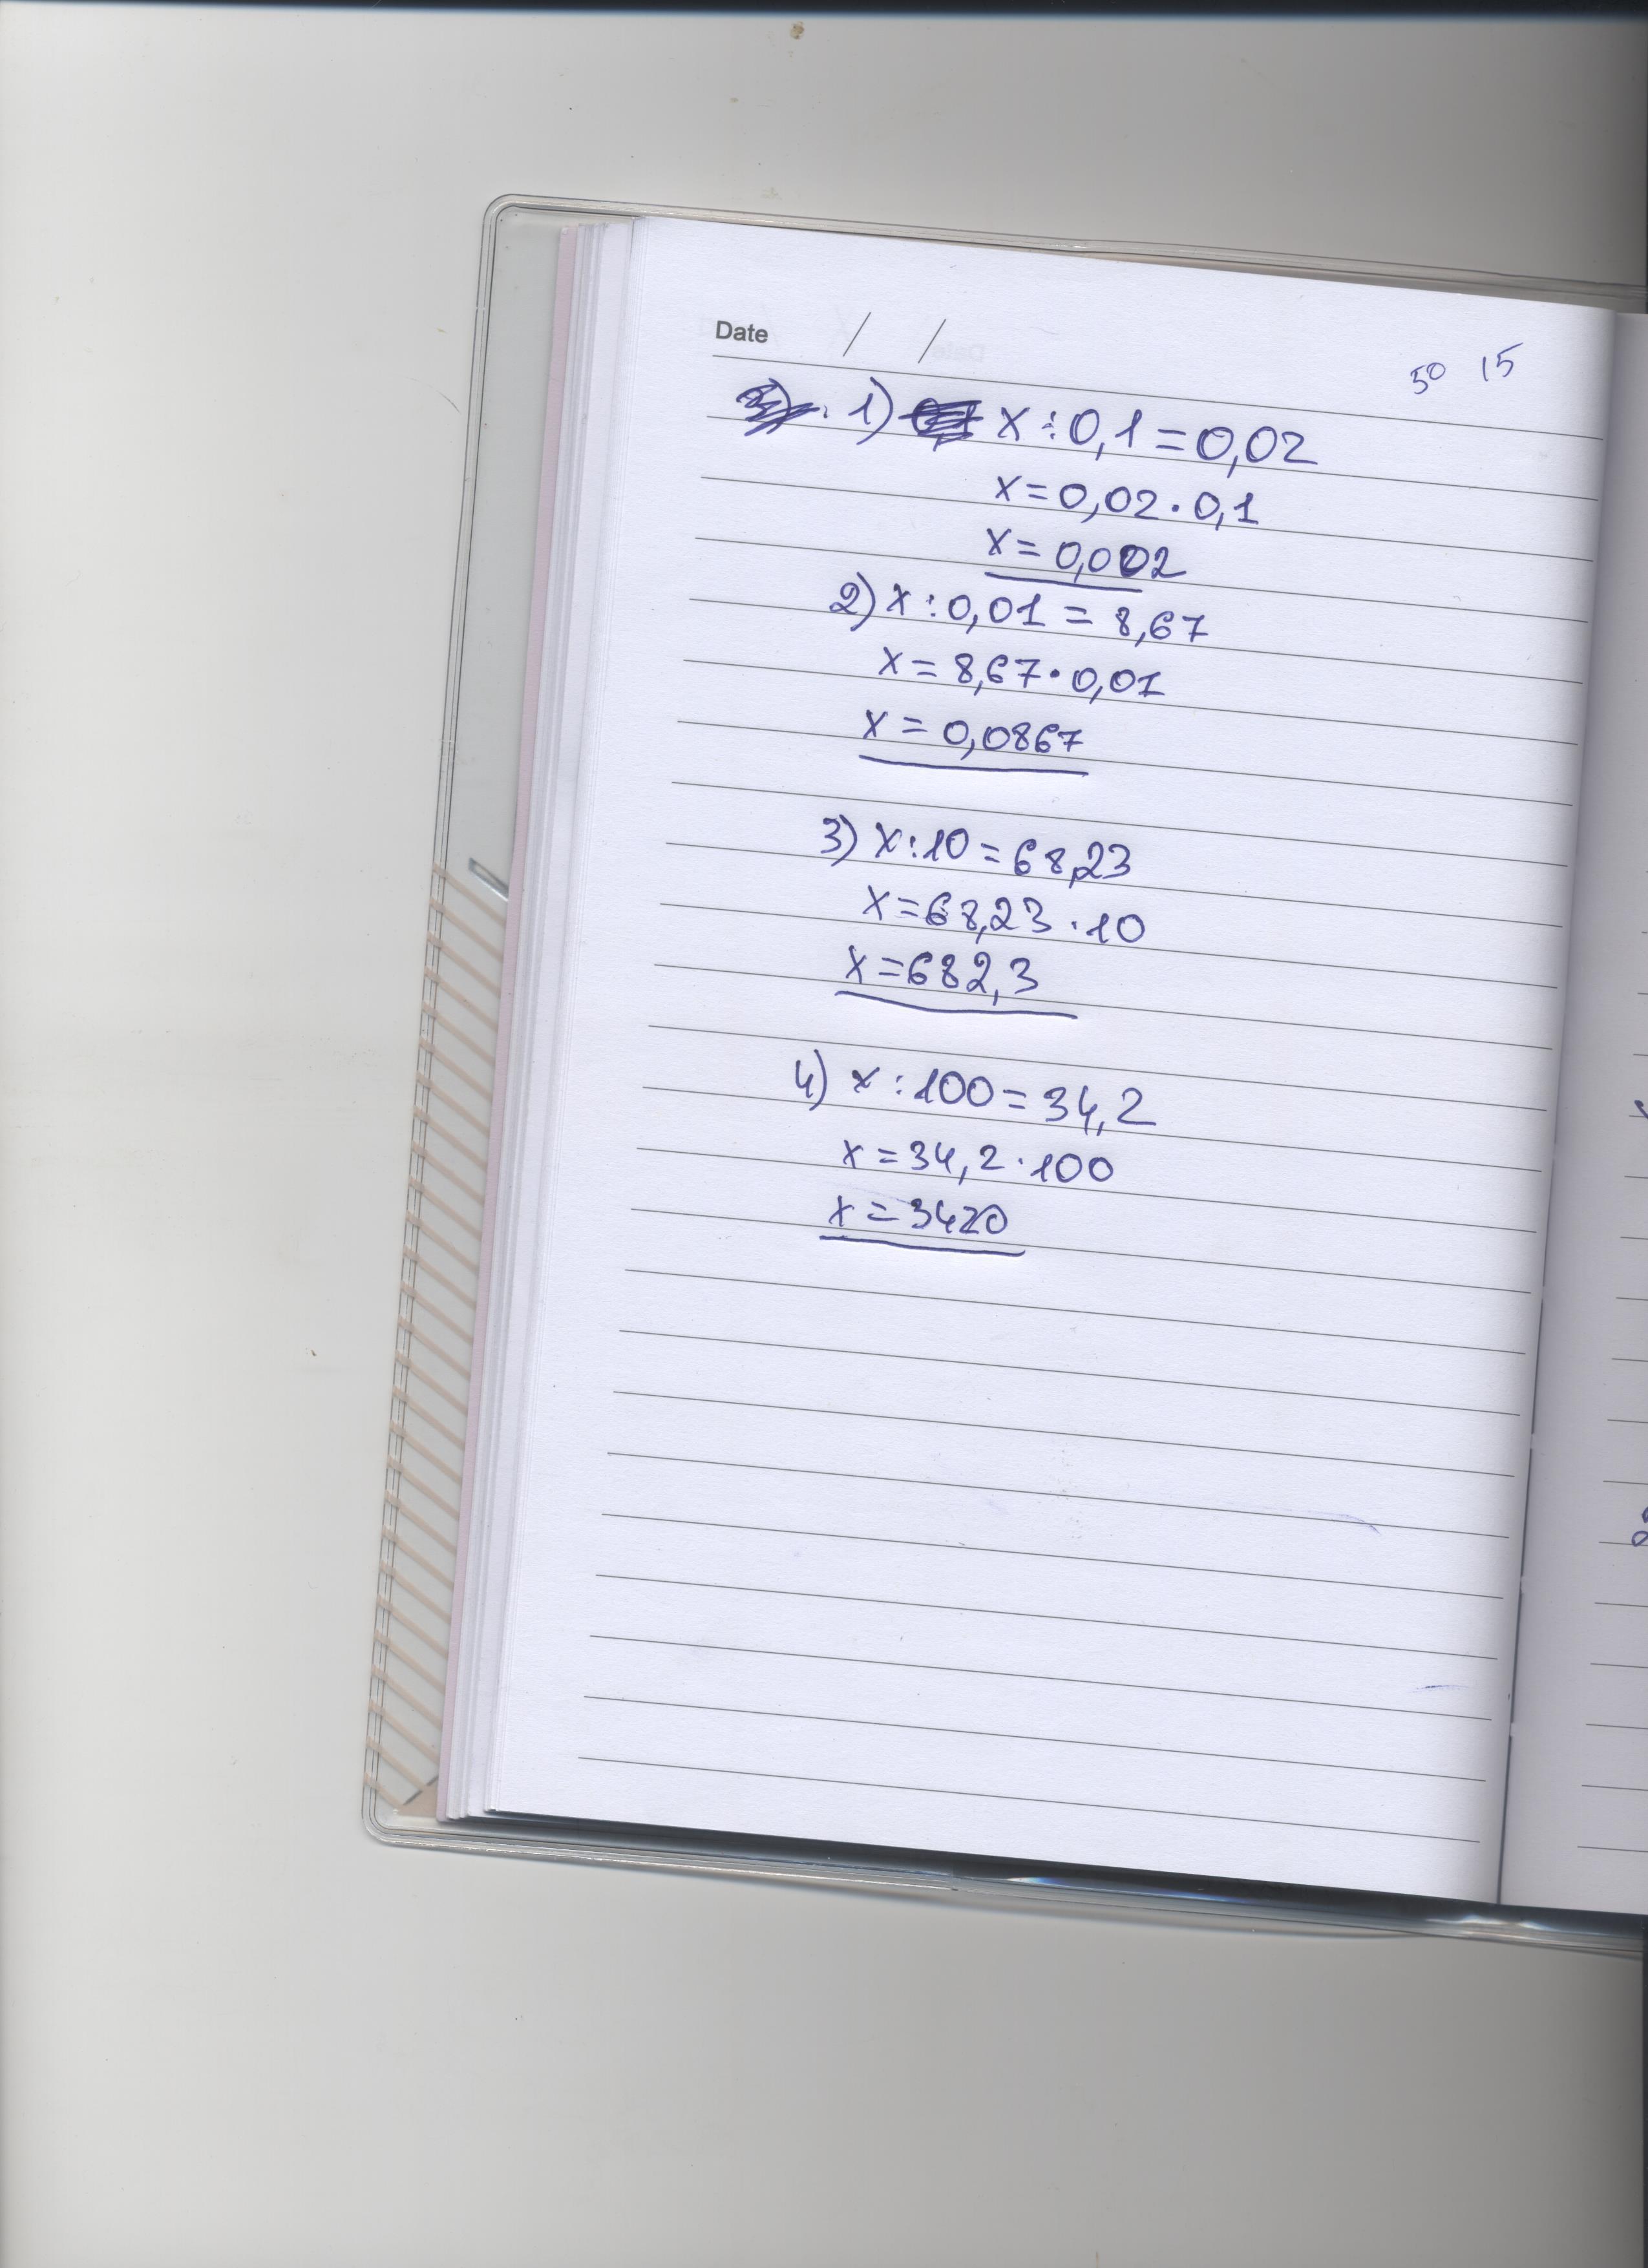 Date / /
50 15
1) x : 0,1 = 0,02
x = 0,02 · 0,1
x = 0,002
2) x : 0,01 = 8,67
x = 8,67 · 0,01
x = 0,0867
3) x : 10 = 68,23
x = 68,23 · 10
x = 682,3
4) x : 100 = 34,2
x = 34,2 · 100
x = 3420